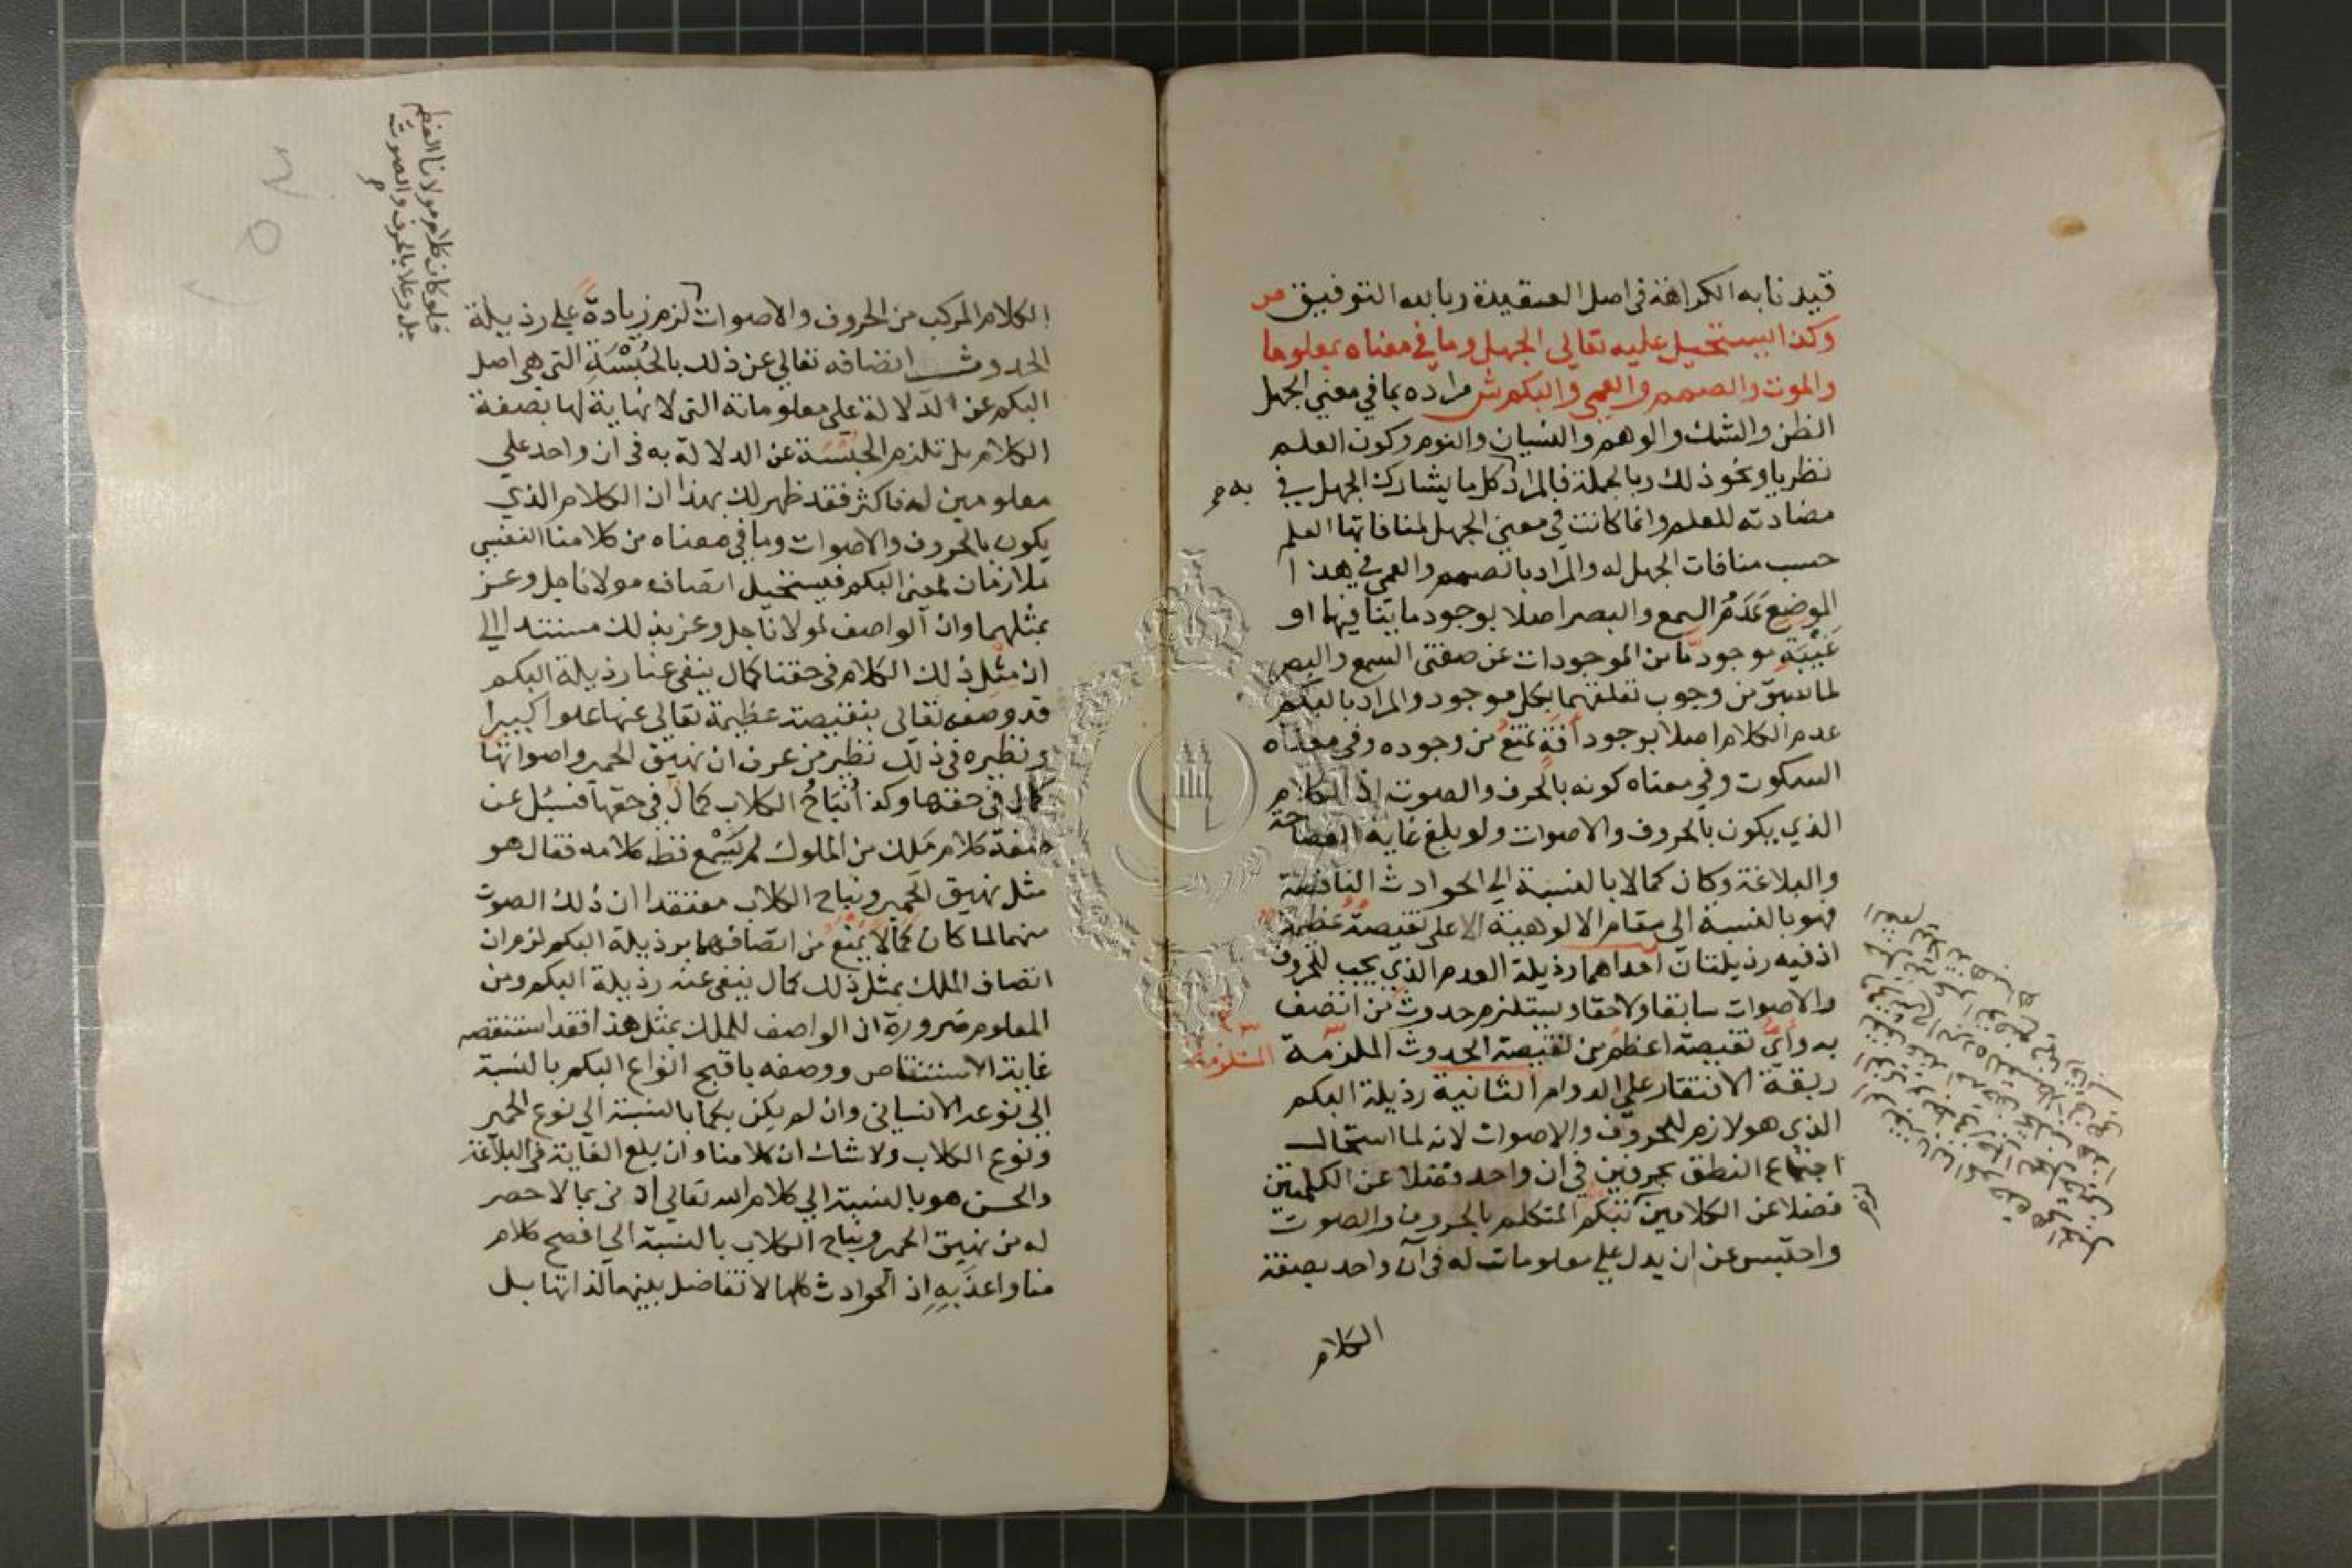 قيدنا به الكراهة في اصل العقيدة وبالله التوفيق ص
وكذا يستحيل عليه تعالي الجهل وما في معناه بمعلوم ما
والموت والصمم والعمي والبكم ش مراده بما في معني الجهل
الظن والشك والوهم والنسيان والنوم وكون العلم
نظريا ونحو ذلك وبالجملة فالمراد كل ما يشارك الجهل في
به صح
مضادته للعلم وانما كانت في معني الجهل لمنافاتها العلم
حسب منافات الجهل له والمراد بالصمم والعمي في هذا
الموضع عَدَمُ السمع والبصر اصلا بوجود ما ينافيهما او
غَيْبَةِ موجود مّا من الموجودات عن صفتي السمع والبصر
لما سبق من وجوب تعلقهما بكل موجود والمراد بالبكم
عدم الكلام اصلا بوجود أفة تمنعُ من وجوده وفي معناه
السكوت وفي معناه كونه بالحرف والصوت إذ الكلام
الذي يكون بالحروف والاصوات ولو بلغ غاية الفصاحة
والبلاغة وكان كمالا بالنسبة الي الحوادث الناقصة
فهو بالنسبة الى مقام الالوهية الاعلى نقيصةٌ عظيمة
اذ فيه رذيلتان احداهما رذيلة العدم الذي يجب للحروف
والاصوات سابقا ولاحقا ويستلزم حدوث من اتصف
به وأيُّ نقيصة اعظم من نقيصة الحدوث الملزمة
المستلزمة
ربقة الافتقار علي الدوام الثانية رذيلة البكم
الذي هو لازم للحروف والاصوات لانه لما استحال
اجتماع النطق بحرفين في ان واحد فضلا عن الكلمتين
فضلا عن الكلامين تبكم المتكلم بالحروف والصوت
واحتبس عن ان يدل علي معلومات له في آن واحد بصفة
الكلام
فلو كان كلام مولانا العظيم
جل وعلا بالحرف والصوت
صح
الكلام المركب من الحروف والاصوات لزم زيادةً علي رذيلة
الحدوث اتصافه تعالي عن ذلك بالحُبْسَةِ التي هي اصل
البكم عن الدلالة علي معلوماته التي لا نهاية لها بصفة
الكلام بل تلزم الحبسة عن الدلالة به في ان واحد علي
معلومين له فاكثر فقد ظهر لك بهذا ان الكلام الذي
يكون بالحروف والاصوات وما في معناه من كلامنا النفسي
ملازمان لمعنى البكم فيستحيل اتصاف مولانا جل وعز
بمثلهما وان الواصف لمولانا جل وعز بذلك مستند الي
ان مِثْلِ ذلك الكلام في حقنا كمال ينفي عنا رذيلة البكم
قد وصفه تعالى بنقيصة عظيمة تعالي عنها علوا كبيرا
ونظيره في ذلك نظير من عرف ان نهيق الحمير واصواتها
كمال في حقها وكذا نُبَاحُ الكلاب كمال في حقها فسئل عن
صفة كلام مَلِك من الملوك لم يَسْمع قط كلامه فقال هو
مثل نهيق الحمير ونباح الكلاب معتقدا ان ذلك الصوت
منهما لما كان كمالا يمنع من اتصافهما برذيلة البكم لزم ان
اتصاف الملك بمثل ذلك كمال ينفي عنه رذيلة البكم ومن
المعلوم ضرورة ان الواصف للملك بمثل هذا فقد استنقصه
غاية الاستنقاص ووصفه باقبح انواع البكم بالنسبة
الي نوعه الانساني وان لم يكن بكما بالنسبة الي نوع الحمير
ونوع الكلاب ولا شك ان كلامنا وان بلغ الغاية في البلاغة
والحسن هو بالنسبة الي كلام الله تعالي ادنى بما لا حصر
له من نهيق الحمير ونباح الكلاب بالنسبة الي افصح كلام
منا واعذبه اذ الحوادث كلها لا تفاضل بينها لذاتها بل